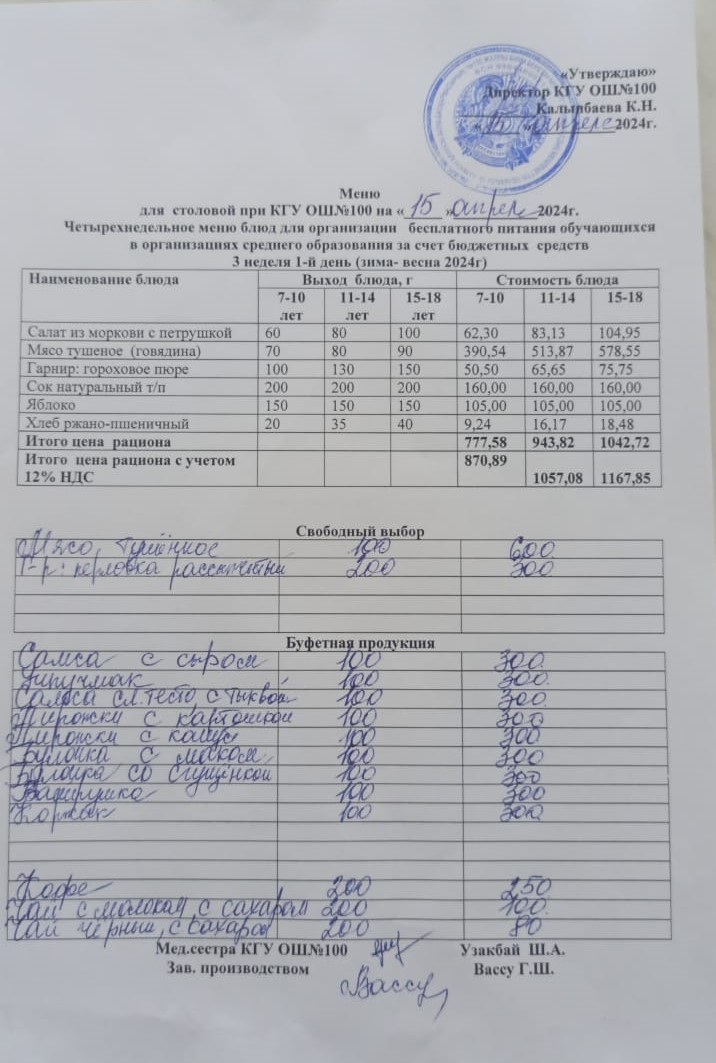 «Утверждаю»
Директор КГУ ОШ№100
Калыпбаева К.Н.
«15» апреле 2024г.
Меню
для столовой при КГУ ОШ№100 на « 15 » апрель 2024г.
Четырехнедельное меню блюд для организации бесплатного питания обучающихся
в организациях среднего образования за счет бюджетных средств
3 неделя 1-й день (зима- весна 2024г)
Наименование блюда Выход блюда, г Стоимость блюда
7-10 лет 11-14 лет 15-18 лет 7-10 11-14 15-18
Салат из моркови с петрушкой 60 80 100 62,30 83,13 104,95
Мясо тушеное (говядина) 70 80 90 390,54 513,87 578,55
Гарнир: гороховое пюре 100 130 150 50,50 65,65 75,75
Сок натуральный т/п 200 200 200 160,00 160,00 160,00
Яблоко 150 150 150 105,00 105,00 105,00
Хлеб ржано-пшеничный 20 35 40 9,24 16,17 18,48
Итого цена рациона 777,58 943,82 1042,72
Итого цена рациона с учетом 12% НДС 870,89 1057,08 1167,85
Свободный выбор
Мясо, тушённое 100 600
Г-р: перловка рассыпчатый 200 300
Буфетная продукция
Самса с сыром 100 300
100 300
Самса сл.тесто, с тыквой 100 300
Пирожки с картошкой 100 300
Пирожки с капус 100 300
Булочка с маком 100 300
Булочка со сгущёнкой 100 300
Ватрушка 100 300
Коржик 100 300
Кофе 200 250
Чай с молоком, с сахаром 200 100
Чай чёрный, с сахаром 200 80
Мед.сестра КГУ ОШ№100 Узакбай Ш.А.
Зав. производством Вассу Г.Ш.
Вассу